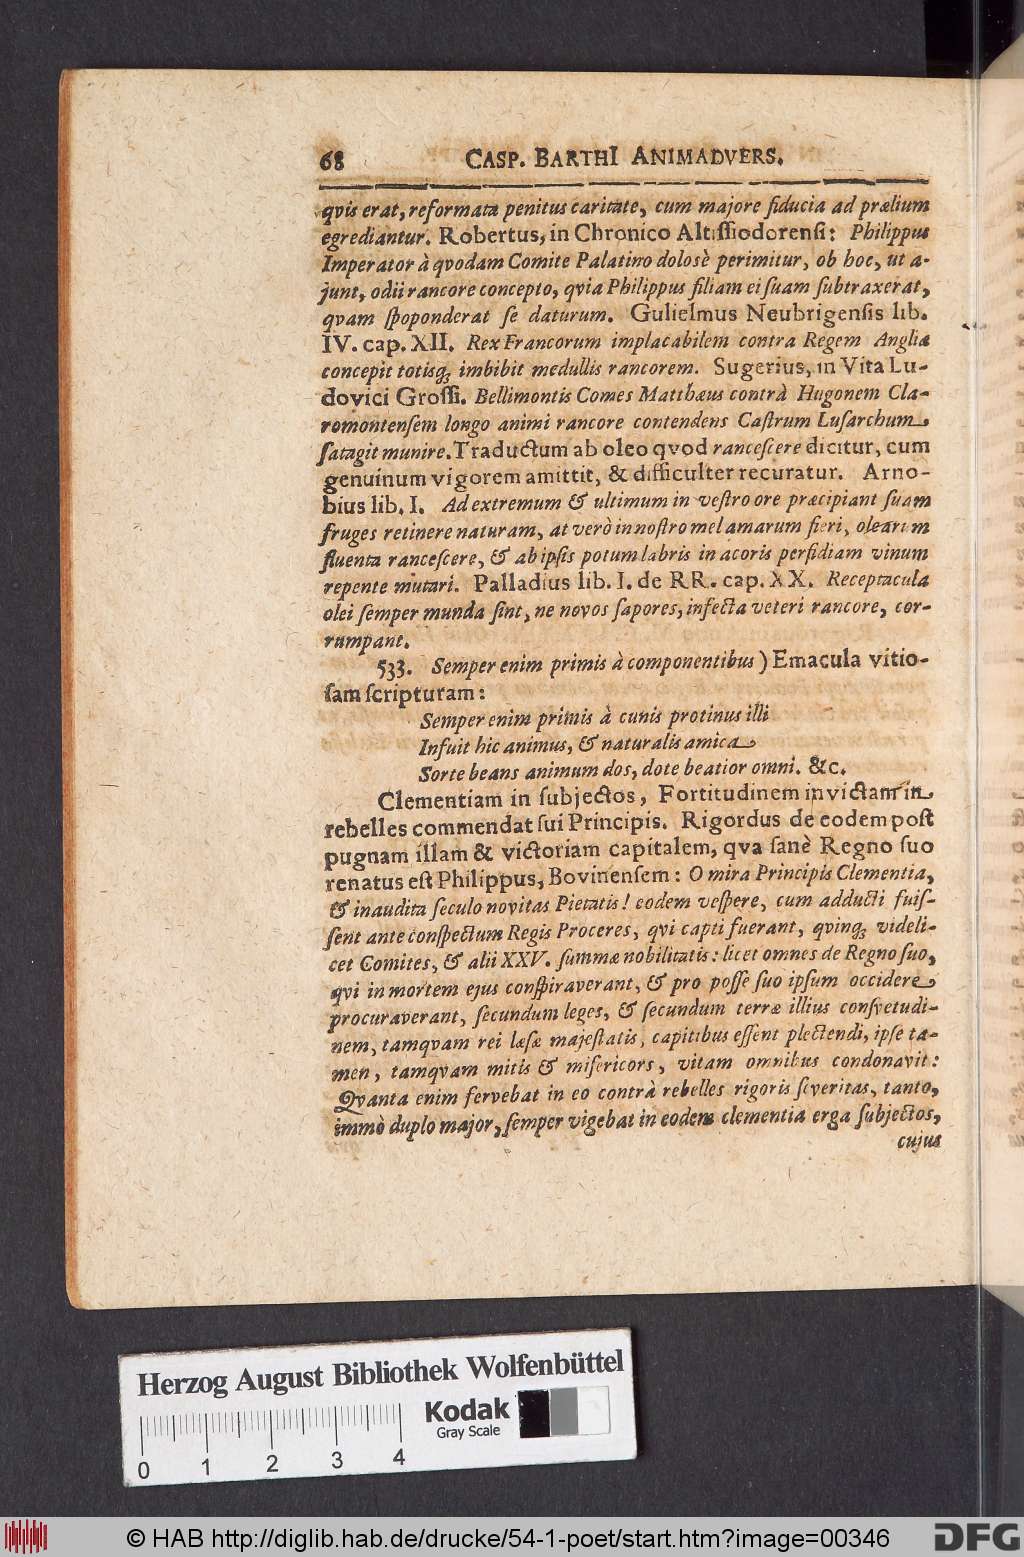 68 CASP. BARTHI ANIMADVERS.
qvis erat, reformata penitus caritate, cum majore fiducia ad prælium
egrediantur. Robertus, in Chronico Altissiodorensi: Philippus
Imperator à qvodam Comite Palatino dolosè perimitur, ob hoc, ut a-
junt, odii rancore concepto, qvia Philippus filiam ei suam subtraxerat,
qvam spoponderat se daturum. Gulielmus Neubrigensis lib.
IV. cap. XII. Rex Francorum implacabilem contra Regem Angliæ
concepit totisq; imbibit medullis rancorem. Sugerius, in Vita Lu-
dovici Grossi. Bellimontis Comes Matthæus contrà Hugonem Cla-
romontensem longo animi rancore contendens Castrum Lusarchum
satagit munire. Traductum ab oleo qvod rancescere dicitur, cum
genuinum vigorem amittit, & difficulter recuratur. Arno-
bius lib. I. Ad extremum & ultimum in vestro ore præcipiant suam
fruges retinere naturam, at verò in nostro mel amarum fieri, olearum
fluenta rancescere, & ab ipsis potum labris in acoris perfidiam vinum
repente mutari. Palladius lib. I. de RR. cap. XX. Receptacula
olei semper munda sint, ne novos sapores, infecta veteri rancore, cor-
rumpant.
533. Semper enim primis à componentibus ) Emacula vitio-
sam scripturam:
Semper enim primis à cunis protinus illi
Infuit hic animus, & naturalis amica
Sorte beans animum dos, dote beatior omni. &c.
Clementiam in subjectos, Fortitudinem invictam in
rebelles commendat sui Principis. Rigordus de eodem post
pugnam illam & victoriam capitalem, qva sanè Regno suo
renatus est Philippus, Bovinensem: O mira Principis Clementia,
& inaudita seculo novitas Pietatis! eodem vespere, cum adducti fuis-
sent ante conspectum Regis Proceres, qvi capti fuerant, qvinq; videli-
cet Comites, & alii XXV. summæ nobilitatis: licet omnes de Regno suo,
qvi in mortem ejus conspiraverant, & pro posse suo ipsum occidere
procuraverant, secundum leges, & secundum terræ illius consvetudi-
nem, tamqvam rei læsæ majestatis, capitibus essent plectendi, ipse ta-
men, tamqvam mitis & misericors, vitam omnibus condonavit:
Qvanta enim fervebat in eo contrà rebelles rigoris severitas, tanto,
immò duplo major, semper vigebat in eodem clementia erga subjectos,
cujus
Herzog August Bibliothek Wolfenbüttel
Kodak
Gray Scale
0 1 2 3 4
© HAB http://diglib.hab.de/drucke/54-1-poet/start.htm?image=00346
DFG